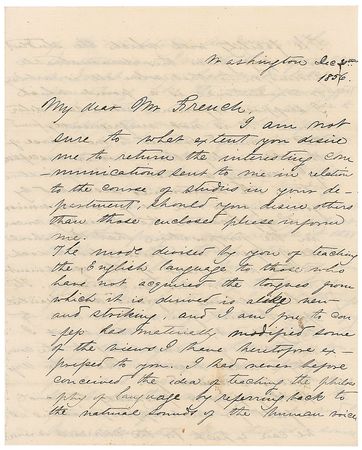 Washington Dec 2nd
1856.
My dear Mr French,
I am not
sure to what extent you desire
me to return the interesting com
munications sent to me in relation
to the course of studies in your de-
partment. Should you desire others
than those enclosed please inform
me.
The mode devised by you of teaching
the English language to those who
have not acquired the tongues from
which it is derived is alike new
and striking, and I am free to con-
fess has materially modified some
of the views I have heretofore ex-
pressed to you. I had never before
conceived the idea of teaching the philos
ophy of language by referring back to
the natural sounds of the human voice